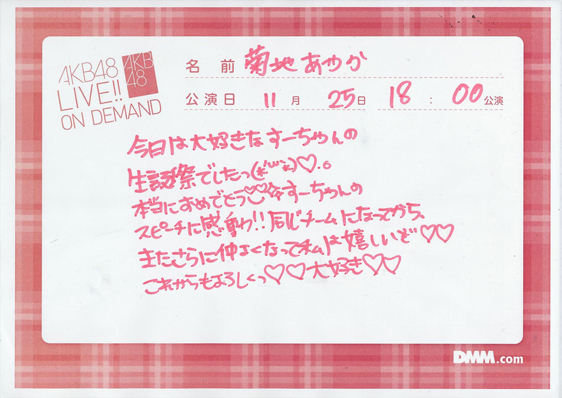 AKB48
LIVE!!
ON DEMAND
AKB
48
名前 菊地あやか
公演日 11月 25日 18:00公演
今日は大好きなすーちゃんの
生誕祭でしたっ(*´`*)♡.。
本当におめでとう♡すーちゃんの
スピーチに感動!!同じチームになってから、
またさらに仲よくなって私は嬉しいぞ♡♡
これからもよろしくっ♡♡大好き♡♡
DMM.com